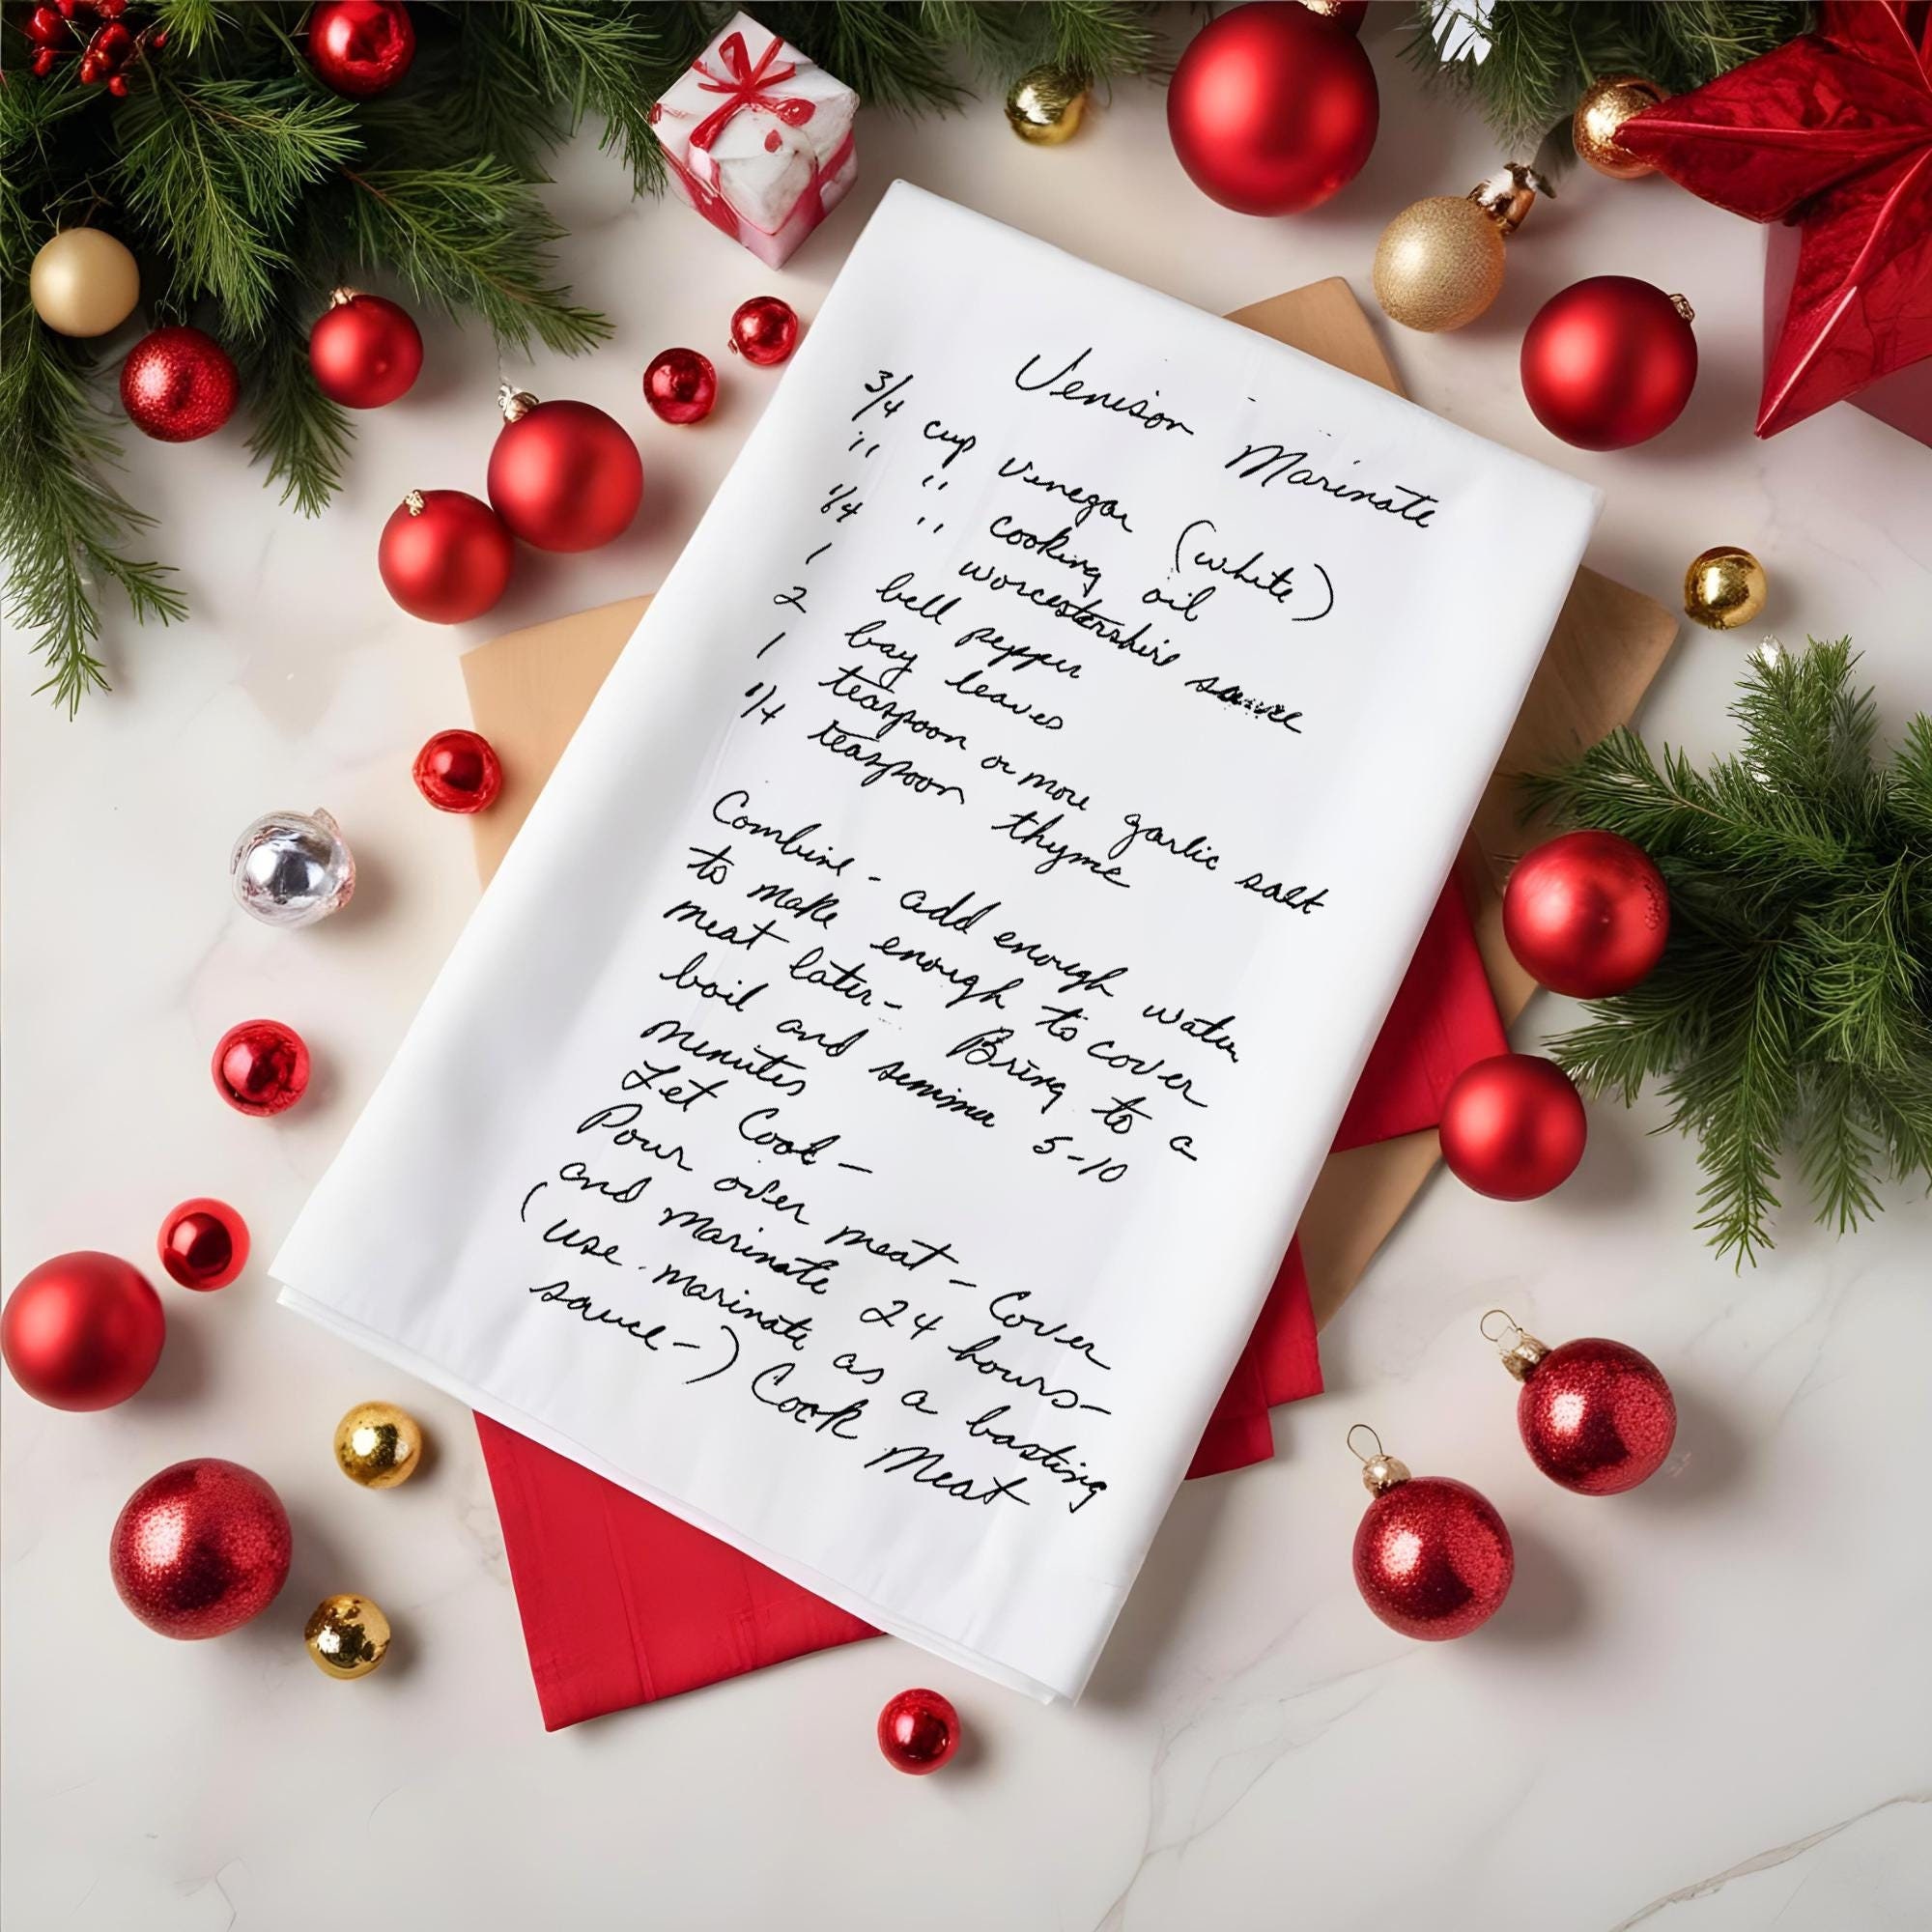 Venison Marinate
3/4 cup vinegar (white)
" " cooking oil
1/4 " worcestershire sauce
1 bell pepper
2 bay leaves
1 teaspoon or more garlic salt
1/4 teaspoon thyme
Combine - add enough water
to make enough to cover
meat later - Bring to a
boil and simmer 5-10
minutes
Let Cool -
Pour over meat - Cover
and marinate 24 hours -
(use marinate as a basting
sauce -) Cook Meat